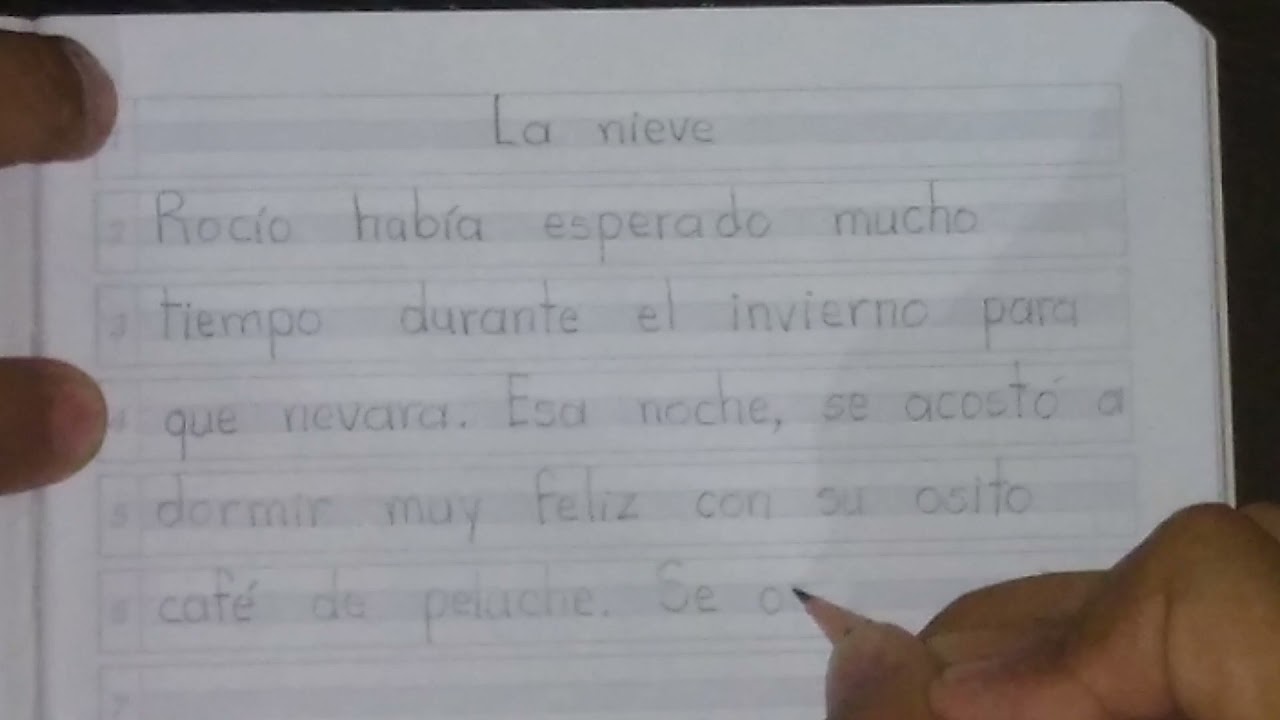 La nieve
Rocío había esperado mucho
tiempo durante el invierno para
que nevara. Esa noche, se acostó a
dormir muy feliz con su osito
café de peluche. Se